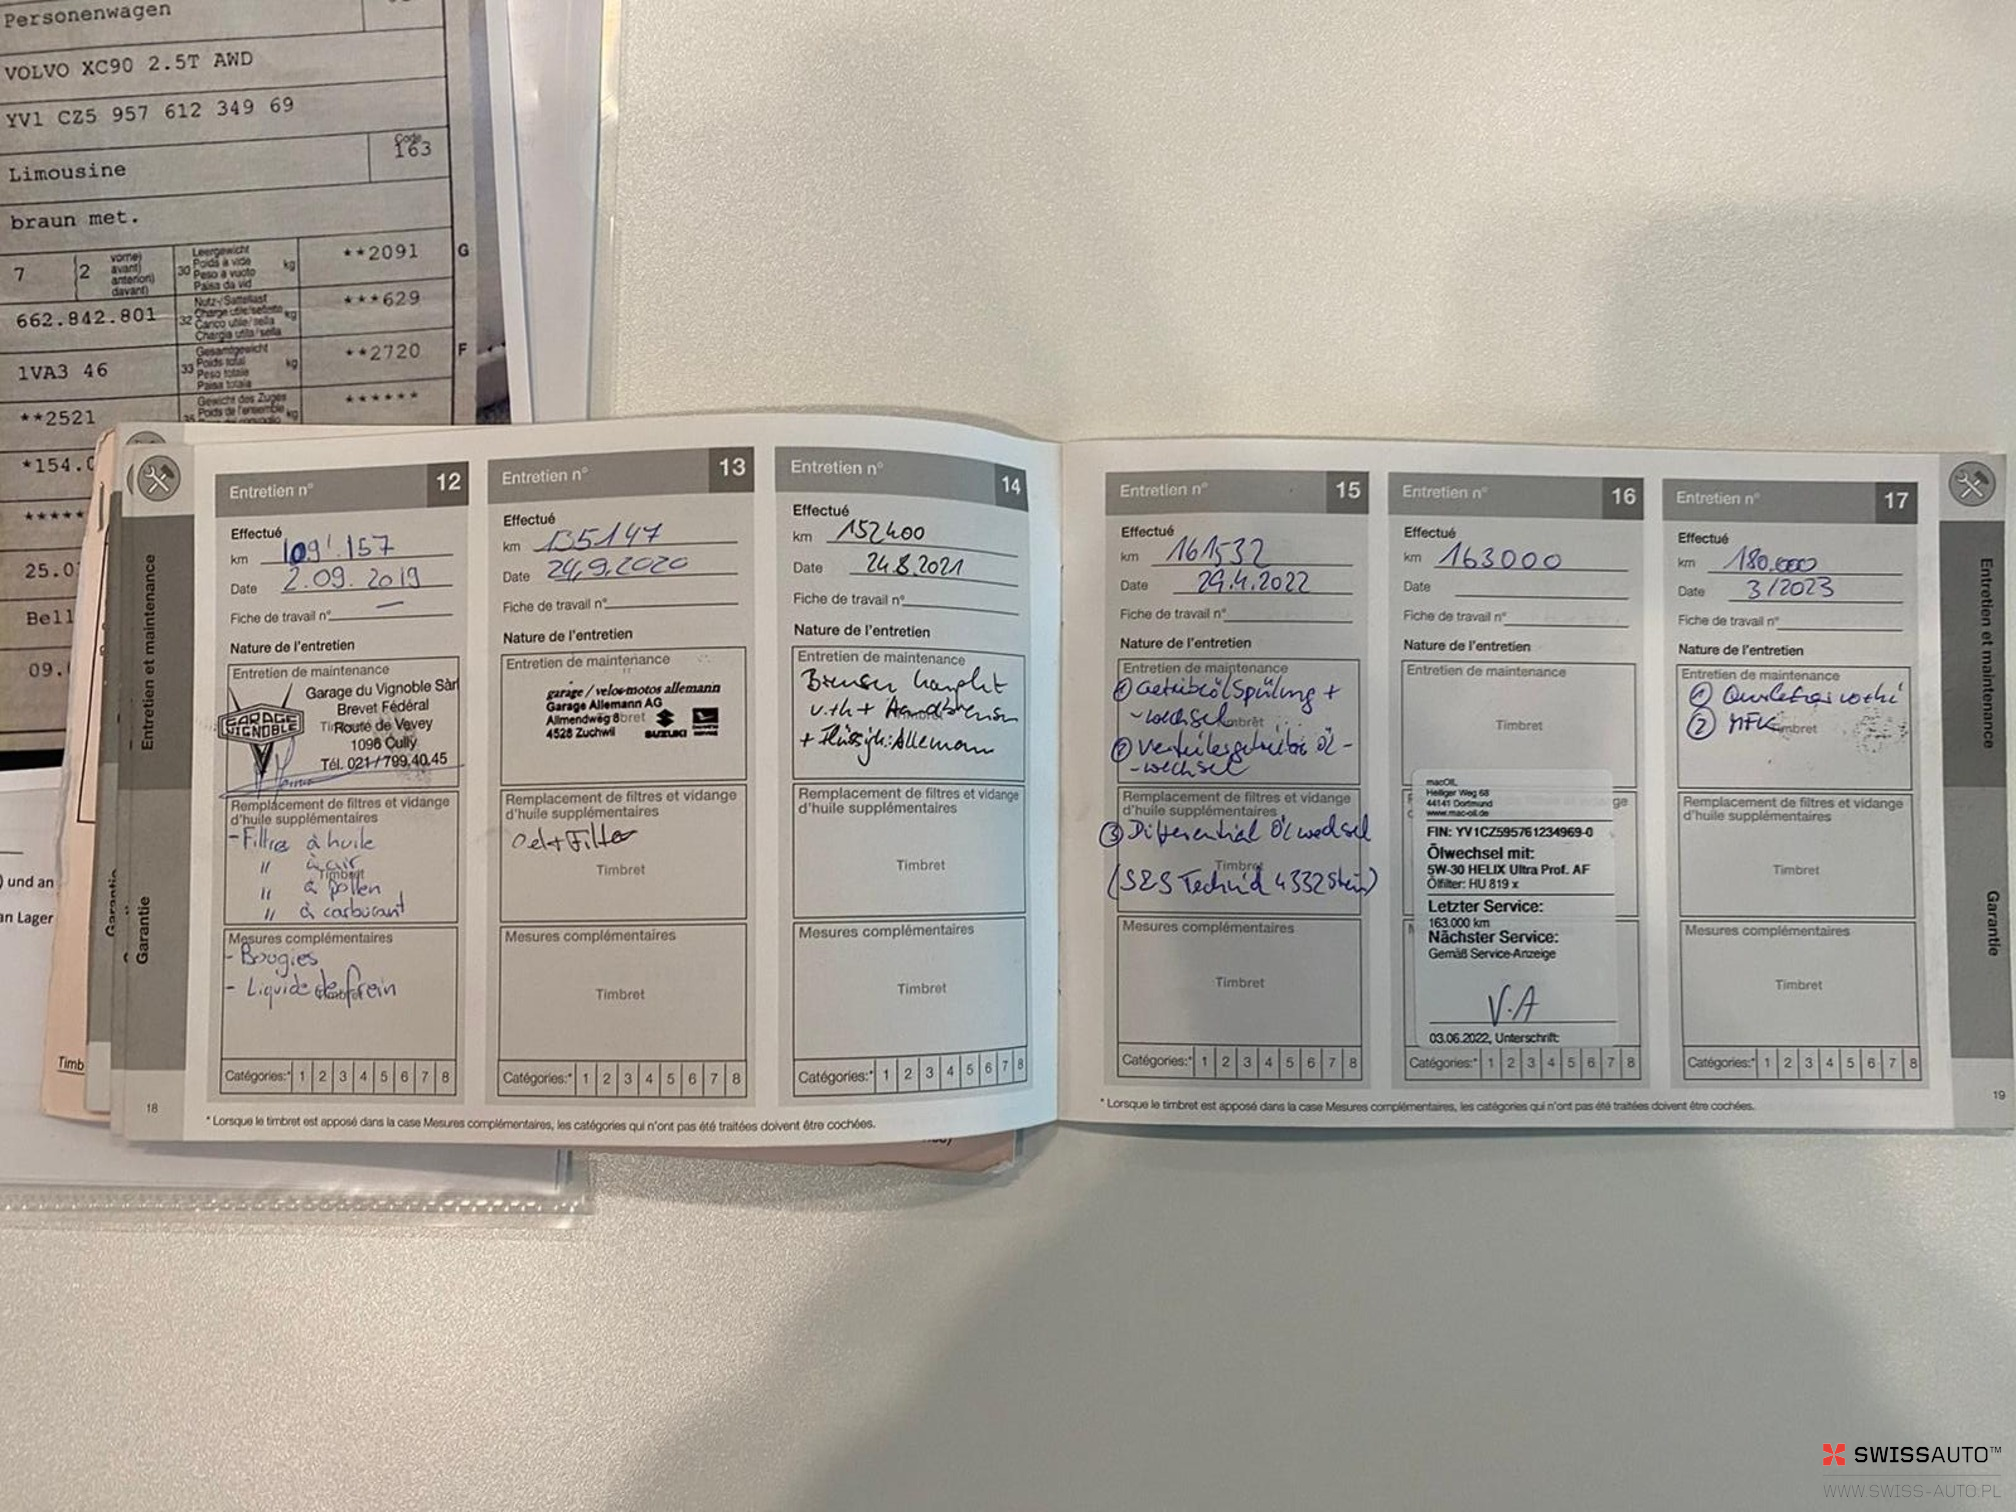 Personenwagen
VOLVO XC90 2.5T AWD
YV1 CZ5 957 612 349 69
Code
163
Limousine
braun met.
7 2 vorne) avant) anteriori) davant) 30 Leergewicht Poids à vide Peso a vuoto Paisa da vid kg **2091 G
662.842.801 32 Nutz-/Sattellast Charge utile/sellette Carico utile/sella Chargia utila/sella kg ***629
1VA3 46 33 Gesamtgewicht Poids total Peso totale Paisa totala kg **2720 F
**2521 35 Gewicht des Zuges Poids de l'ensemble kg ******
*154.0
*****
25.0
Bell
09.
) und an
an Lager
Timb
Entretien et maintenance
Garantie
Garantie
Entretien n° 12
Effectué
km 109'157
Date 2.09.2019
Fiche de travail n° —
Nature de l'entretien
Entretien de maintenance
GARAGE VIGNOBLE
Garage du Vignoble Sàrl
Brevet Fédéral
Route de Vevey
1096 Cully
Tél. 021 / 799.40.45
Remplacement de filtres et vidange
d'huile supplémentaires
- Filtres à huile
" à air
Timbret
" à pollen
" à carburant
Mesures complémentaires
- Bougies
- Liquide de frein
Timbret
Catégories:* 1 2 3 4 5 6 7 8
Entretien n° 13
Effectué
km 135147
Date 24.9.2020
Fiche de travail n°
Nature de l'entretien
Entretien de maintenance
garage / velos-motos allemann
Garage Allemann AG
Allmendweg 8
4528 Zuchwil
SUZUKI
Remplacement de filtres et vidange
d'huile supplémentaires
Oel + Filter
Timbret
Mesures complémentaires
Timbret
Catégories:* 1 2 3 4 5 6 7 8
Entretien n° 14
Effectué
km 152400
Date 24.8.2021
Fiche de travail n°
Nature de l'entretien
Entretien de maintenance
Bremsen komplet
v.+h + Handbremsen
Allemann
Remplacement de filtres et vidange
d'huile supplémentaires
Timbret
Mesures complémentaires
Timbret
Catégories:* 1 2 3 4 5 6 7 8
18
* Lorsque le timbret est apposé dans la case Mesures complémentaires, les catégories qui n'ont pas été traitées doivent être cochées.
Entretien n° 15
Effectué
km 161532
Date 29.4.2022
Fiche de travail n°
Nature de l'entretien
Entretien de maintenance
① Getriebeöl Spülung +
-wechsel
② Verteilergetriebe Öl-
-wechsel
Remplacement de filtres et vidange
d'huile supplémentaires
③ Differential Öl wechsel
Timbret
(S&S Technid 4332 Stein)
Mesures complémentaires
Timbret
Catégories:* 1 2 3 4 5 6 7 8
Entretien n° 16
Effectué
km 163000
Date
Fiche de travail n°
Nature de l'entretien
Entretien de maintenance
Timbret
macOIL
Heiliger Weg 68
44141 Dortmund
www.mac-oil.de
FIN: YV1CZ595761234969-0
Ölwechsel mit:
5W-30 HELIX Ultra Prof. AF
Ölfilter: HU 819 x
Letzter Service:
163.000 km
Nächster Service:
Gemäß Service-Anzeige
V.A
03.06.2022, Unterschrift:
Catégories:* 1 2 3 4 5 6 7 8
Entretien n° 17
Effectué
km 180.000
Date 3/2023
Fiche de travail n°
Nature de l'entretien
Entretien de maintenance
①
② MFK
Timbret
Remplacement de filtres et vidange
d'huile supplémentaires
Timbret
Mesures complémentaires
Timbret
Catégories:* 1 2 3 4 5 6 7 8
* Lorsque le timbret est apposé dans la case Mesures complémentaires, les catégories qui n'ont pas été traitées doivent être cochées.
19
Entretien et maintenance
Garantie
SWISSAUTO™
WWW.SWISS-AUTO.PL